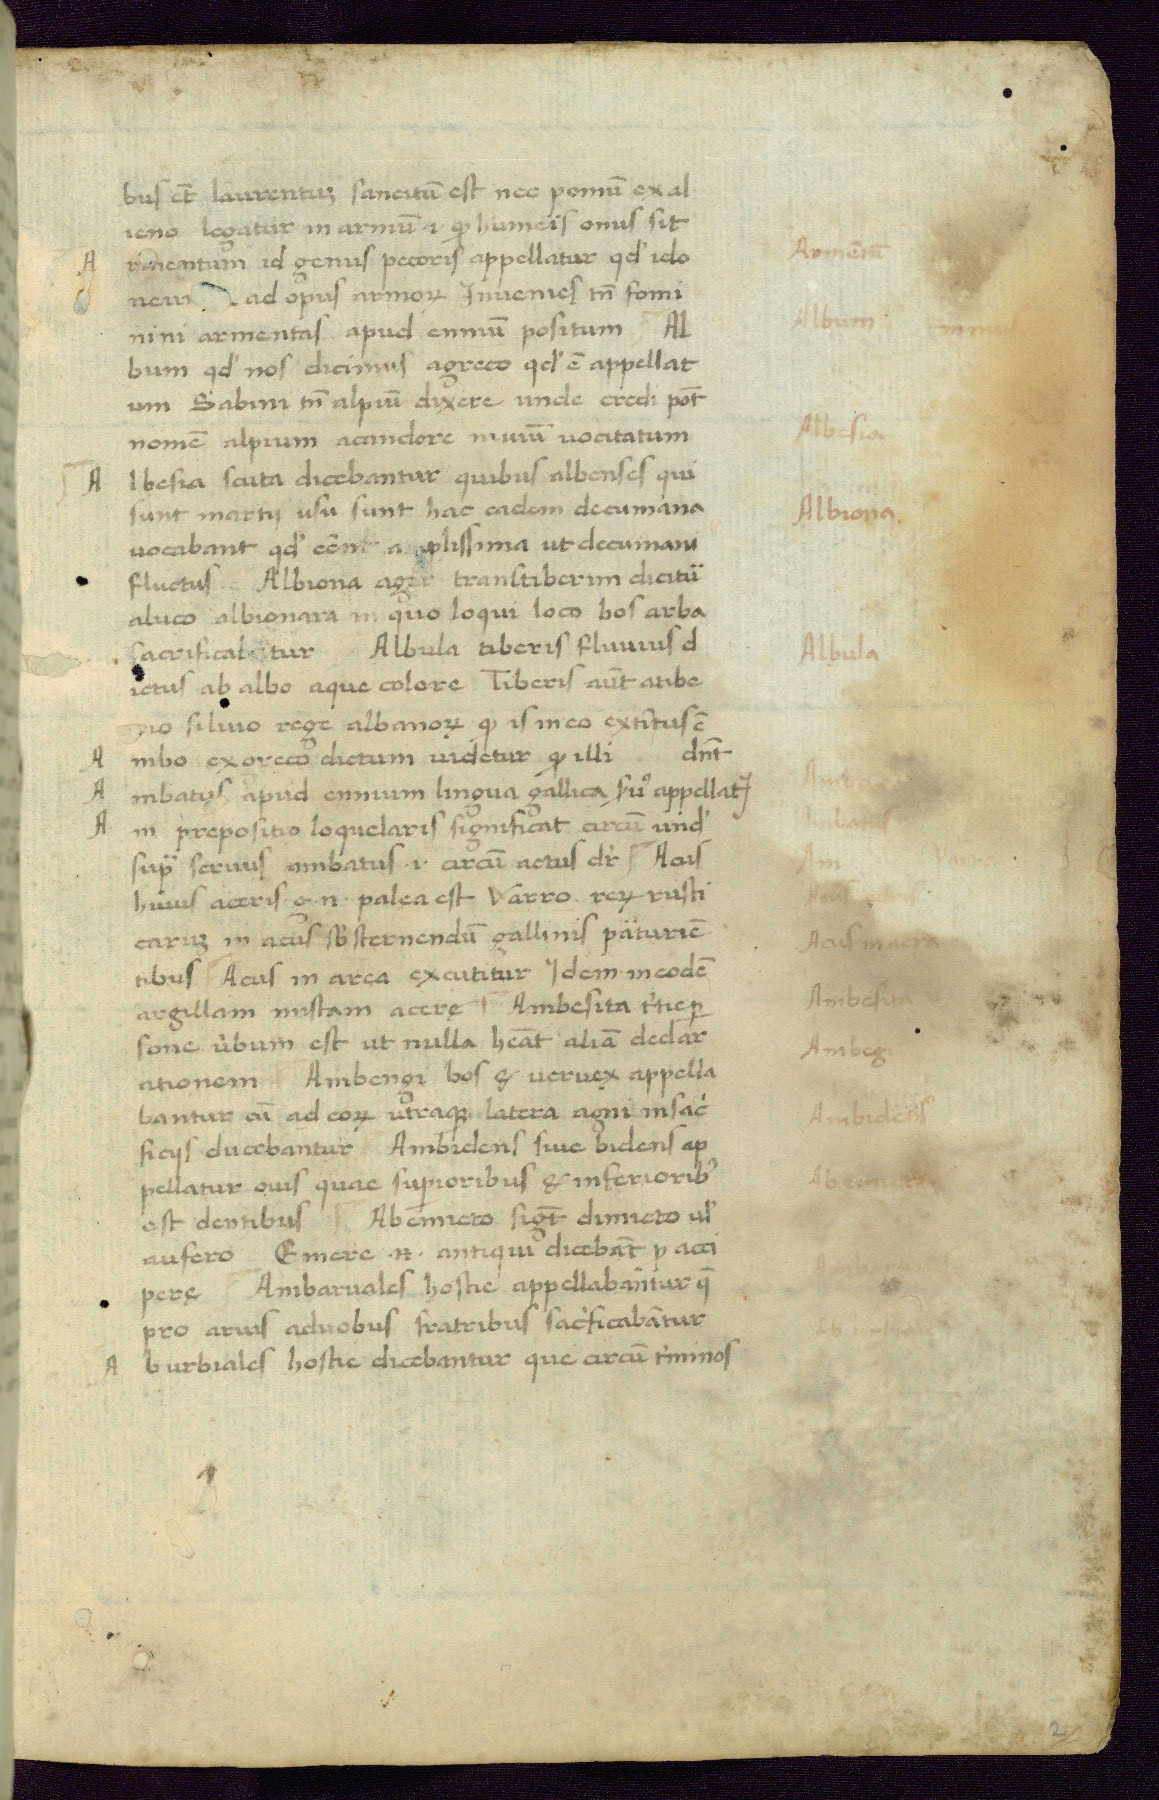 bus eēt laurentuʒ sancitū est nec pomū ex al
ieno legatur in armū ·i· ꝙ humeis onus sit
A rmentum id genus pecoris appellatur qđ ido
neum ad opus armoꝝ Inuenies tn̄ fomi
nini armentas apud enniū positum Al
bum qđ nos dicimus agreco qđ ē appellat
um Sabini tn̄ alpiū dixere unde credi pot̄
nomē alpium acandore niuiū uocitatum
A lbesia scuta dicebantur quibus albenses qui
sunt martij usu sunt hac eadem decumana
uocabant qđ eēnt amplissima ut decumani
fluctus Albiona ager transtiberim dicitū
aluco albionara in quo loqui loco bos arba
sacrificabatur Albula tiberis fluuius d
ictus ab albo aque colore Tiberis aut̄ atibe
rio siluio rege albanoꝝ ꝙ is in eo extintus ē
A mbo exgreco dictum uidetur ꝙ illi dn̄t
A mbatus apud ennium lingua gallica suͦ appellatꝭ
A m prepositio loquelaris significat circū und̛
sup̄ seruus ambatus ·i· circū actus dr̄ Acus
huius aceris g· n· palea est Varro reꝝ rusti
caruʒ in acus sb̄sternendū gallinis pāturiē
tibus Acus in area excutitur Idem in eodē
argillam mistam acere Ambesita t̛tie ꝑ
sone ưbum est ut nulla heāt aliā declar
ationem Ambengi bos & veruex appella
bantur cū ad eoꝝ utraqꝫ latera agni in sac̛
ficijs ducebantur Ambidens siue bidens ap
pellatur ouis quae supioribus & inferiorib᾽
est dentibus Abemito sigt̄ dimito ul̛
aufero Emere ·n· antiqui dicebāt ꝑ acci
pere Ambaruales hostie appellabantur q̄
pro aruis aduobus fratribus sac̛ficabātur
A burbiales hostie dicebantur que circū t̛minos
Armētū
Album
Albesia
Albiona
Albula
Am
Acus
Acus in aera
Ambesita
Ambegi
Ambidens
Abemito
2